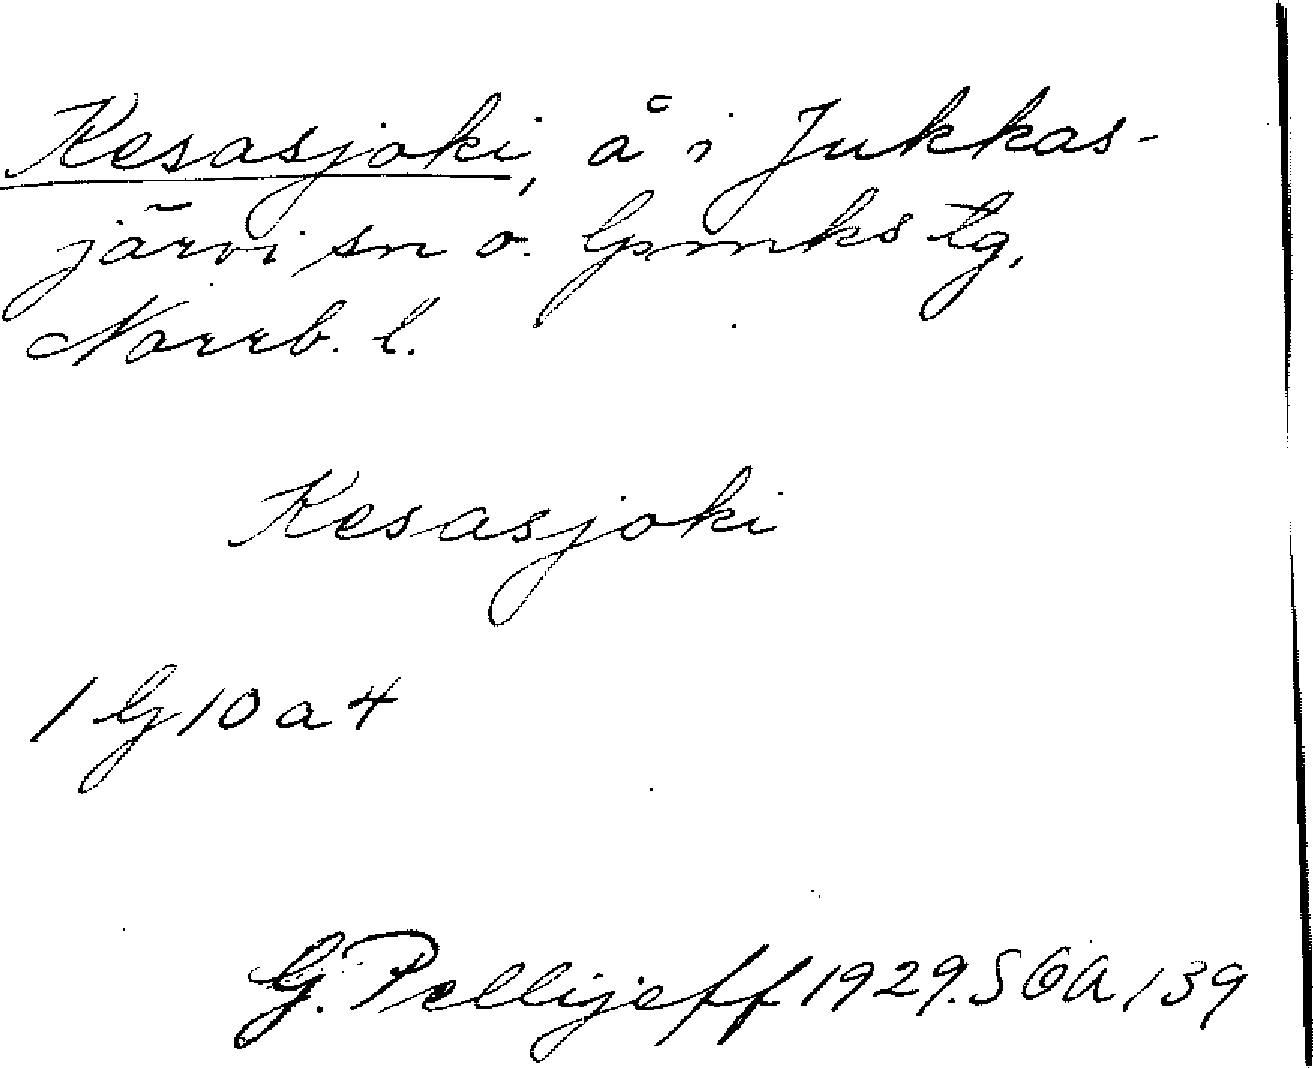 Kesasjoki, å i Jukkas-
järvi sn o. Gmnks tg,
Norrb. l.
Kesasjoki
1 G 10 a 4
G. Pellijeff 1929. SOA 139